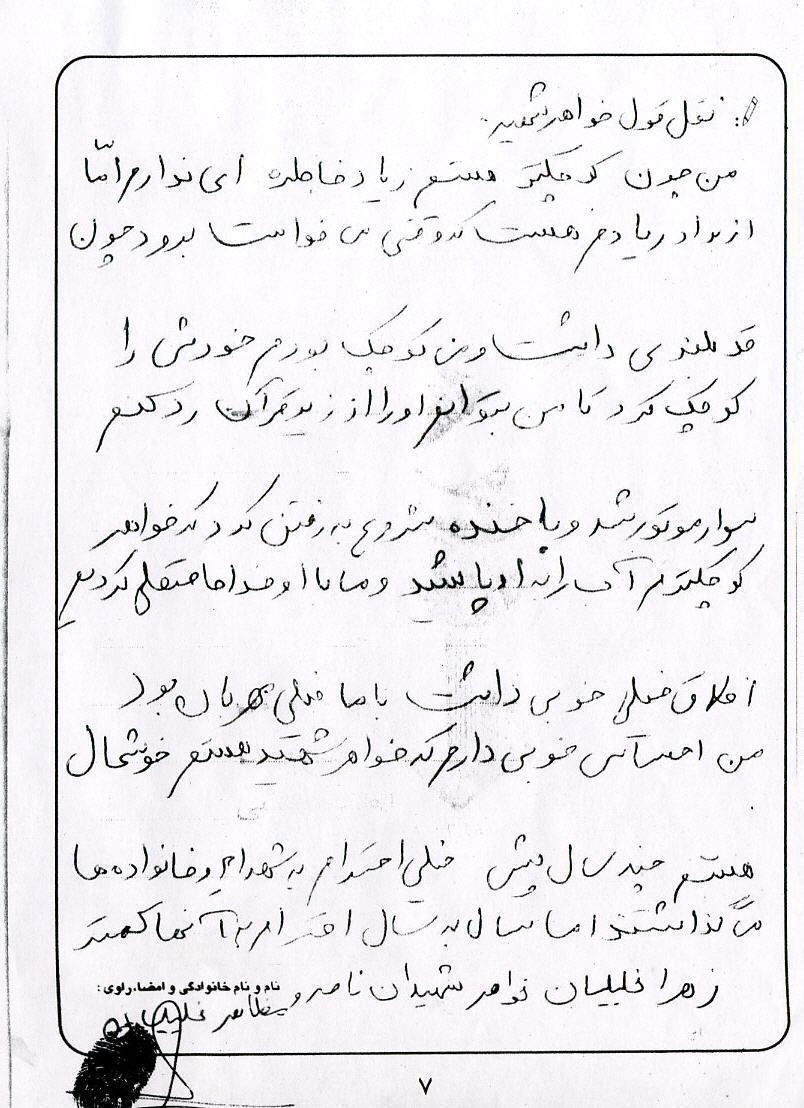 : نقل قول خواهر شهید.
من چون کوچکتر هستم زیاد خاطره ای ندارم امّا
از برادر یادم هست که وقتی می خواست برود چون
قد بلندی داشت و من کوچک بودم خودش را
کوچک کرد تا من بتوانم او را از زیر قرآن رد کنم
سوار موتور شد و با خنده شروع به رفتن کرد که خواهر
کوچکترم آب را به او پاشید و ما با او خداحافظی کردیم
اخلاق خیلی خوبی داشت با ما خیلی مهربان بود
من احساس خوبی دارم که خواهر شهید هستم خوشحال
هستم چند سال پیش خیلی احترام به شهداء و خانواده ها
می گذاشتند اما سال به سال احترام به آنها کمتر
زهرا خلیلیان خواهر شهیدان ناصر و مظاهر خلیلیان
نام و نام خانوادگی و امضاء راوی :
۷